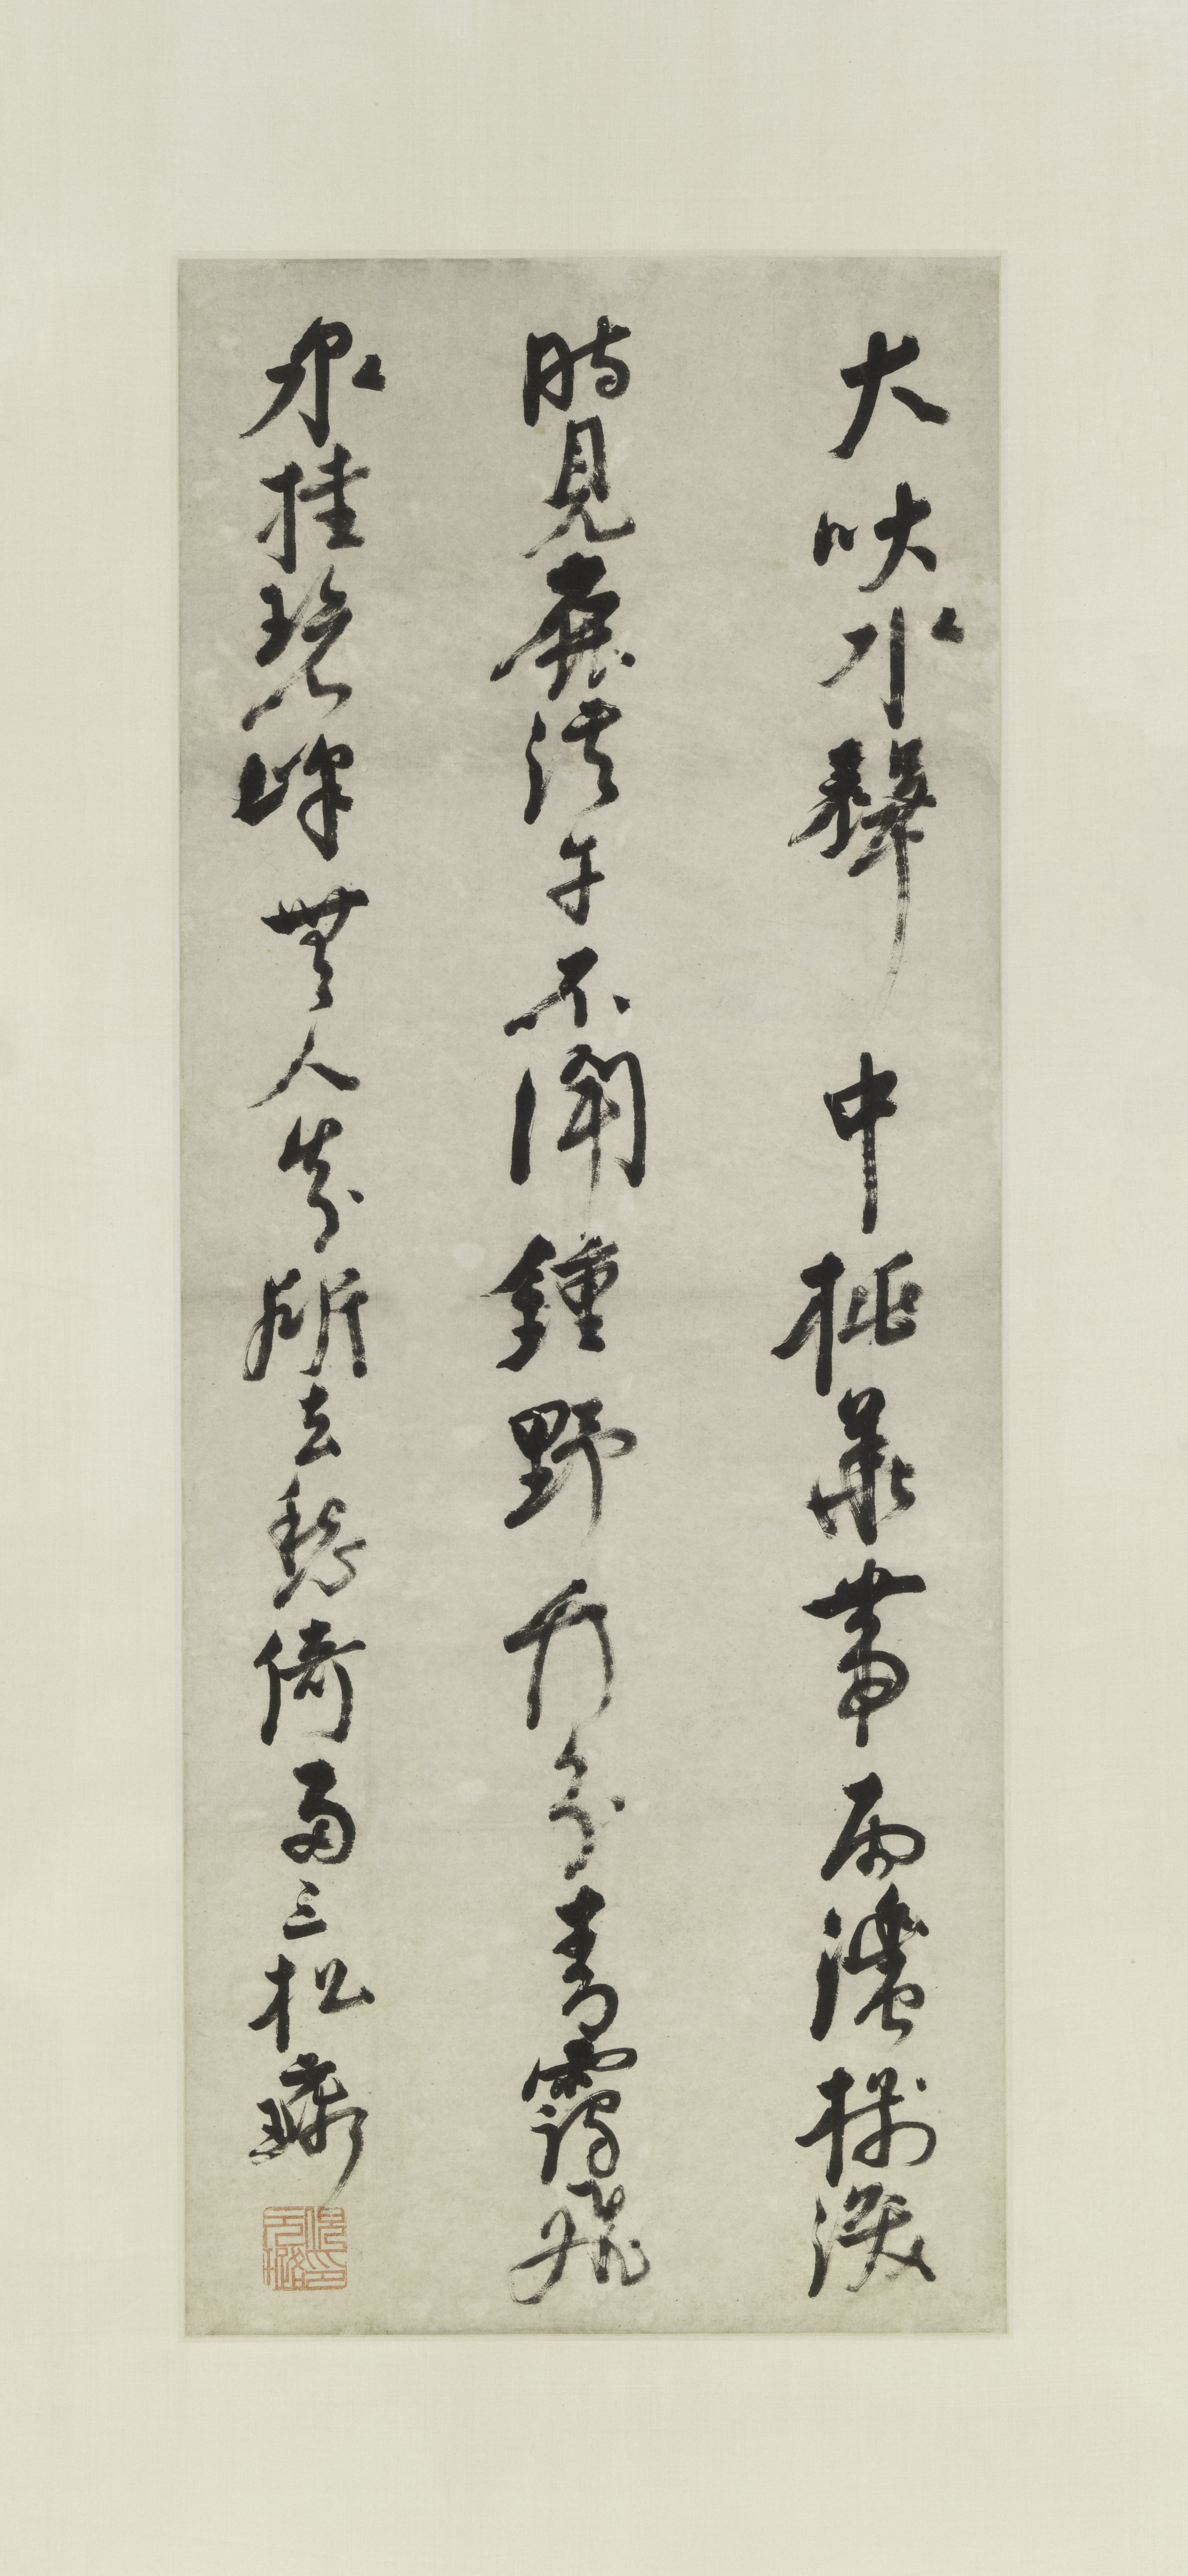 犬吠水聲中桃華帶雨濃樹深
時見鹿溪午不聞鍾野竹分青靄飛
泉挂碧峰無人知所去愁倚兩三松 元璐